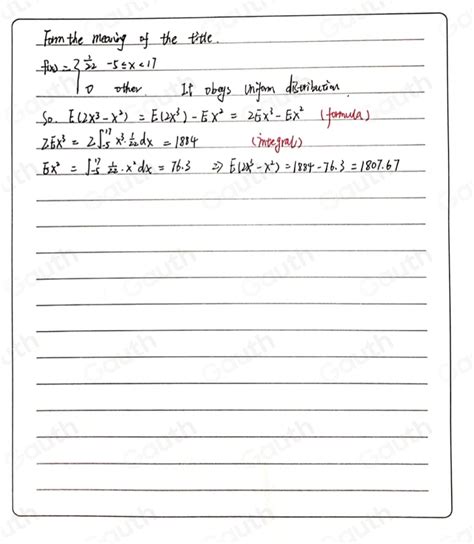 Form the meaning of the title.
f(x) = { 1/22 -5≤x<17
0 other It obeys Uniform distribution
So. E(2X³-X²) = E(2X³) - EX² = 2EX³ - EX² (formula)
2EX³ = 2∫₋₅¹⁷ x³·1/22 dx = 1884 (integral)
EX² = ∫₋₅¹⁷ 1/22·x² dx = 76.3 ⇒ E(2X³-X²) = 1884-76.3 = 1807.67